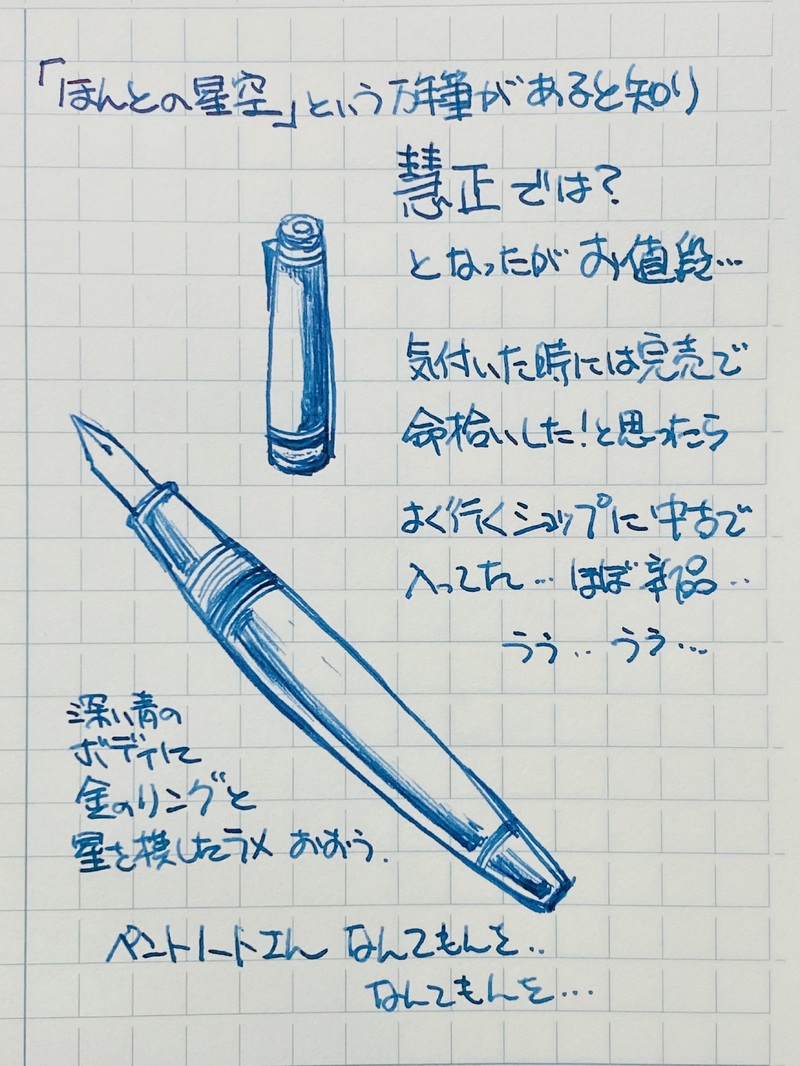 「ほんとの星空」という万年筆があると知り
慧正では?
となったがお値段…
気付いた時には完売で
命拾いした!と思ったら
よく行くショップに中古で
入ってた…ほぼ新品‥
うぅ‥うぅ…
深い青の
ボディに
金のリングと
星を模したラメ おおう.
ペントノートさん なんてもんを‥
なんてもんを…